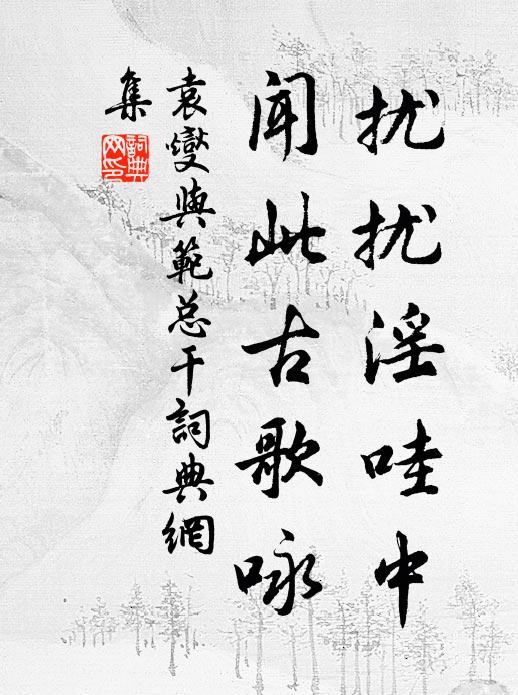 扰扰淫哇中
闻此古歌咏
袁燮與範总干詞典網
集
詞典网印